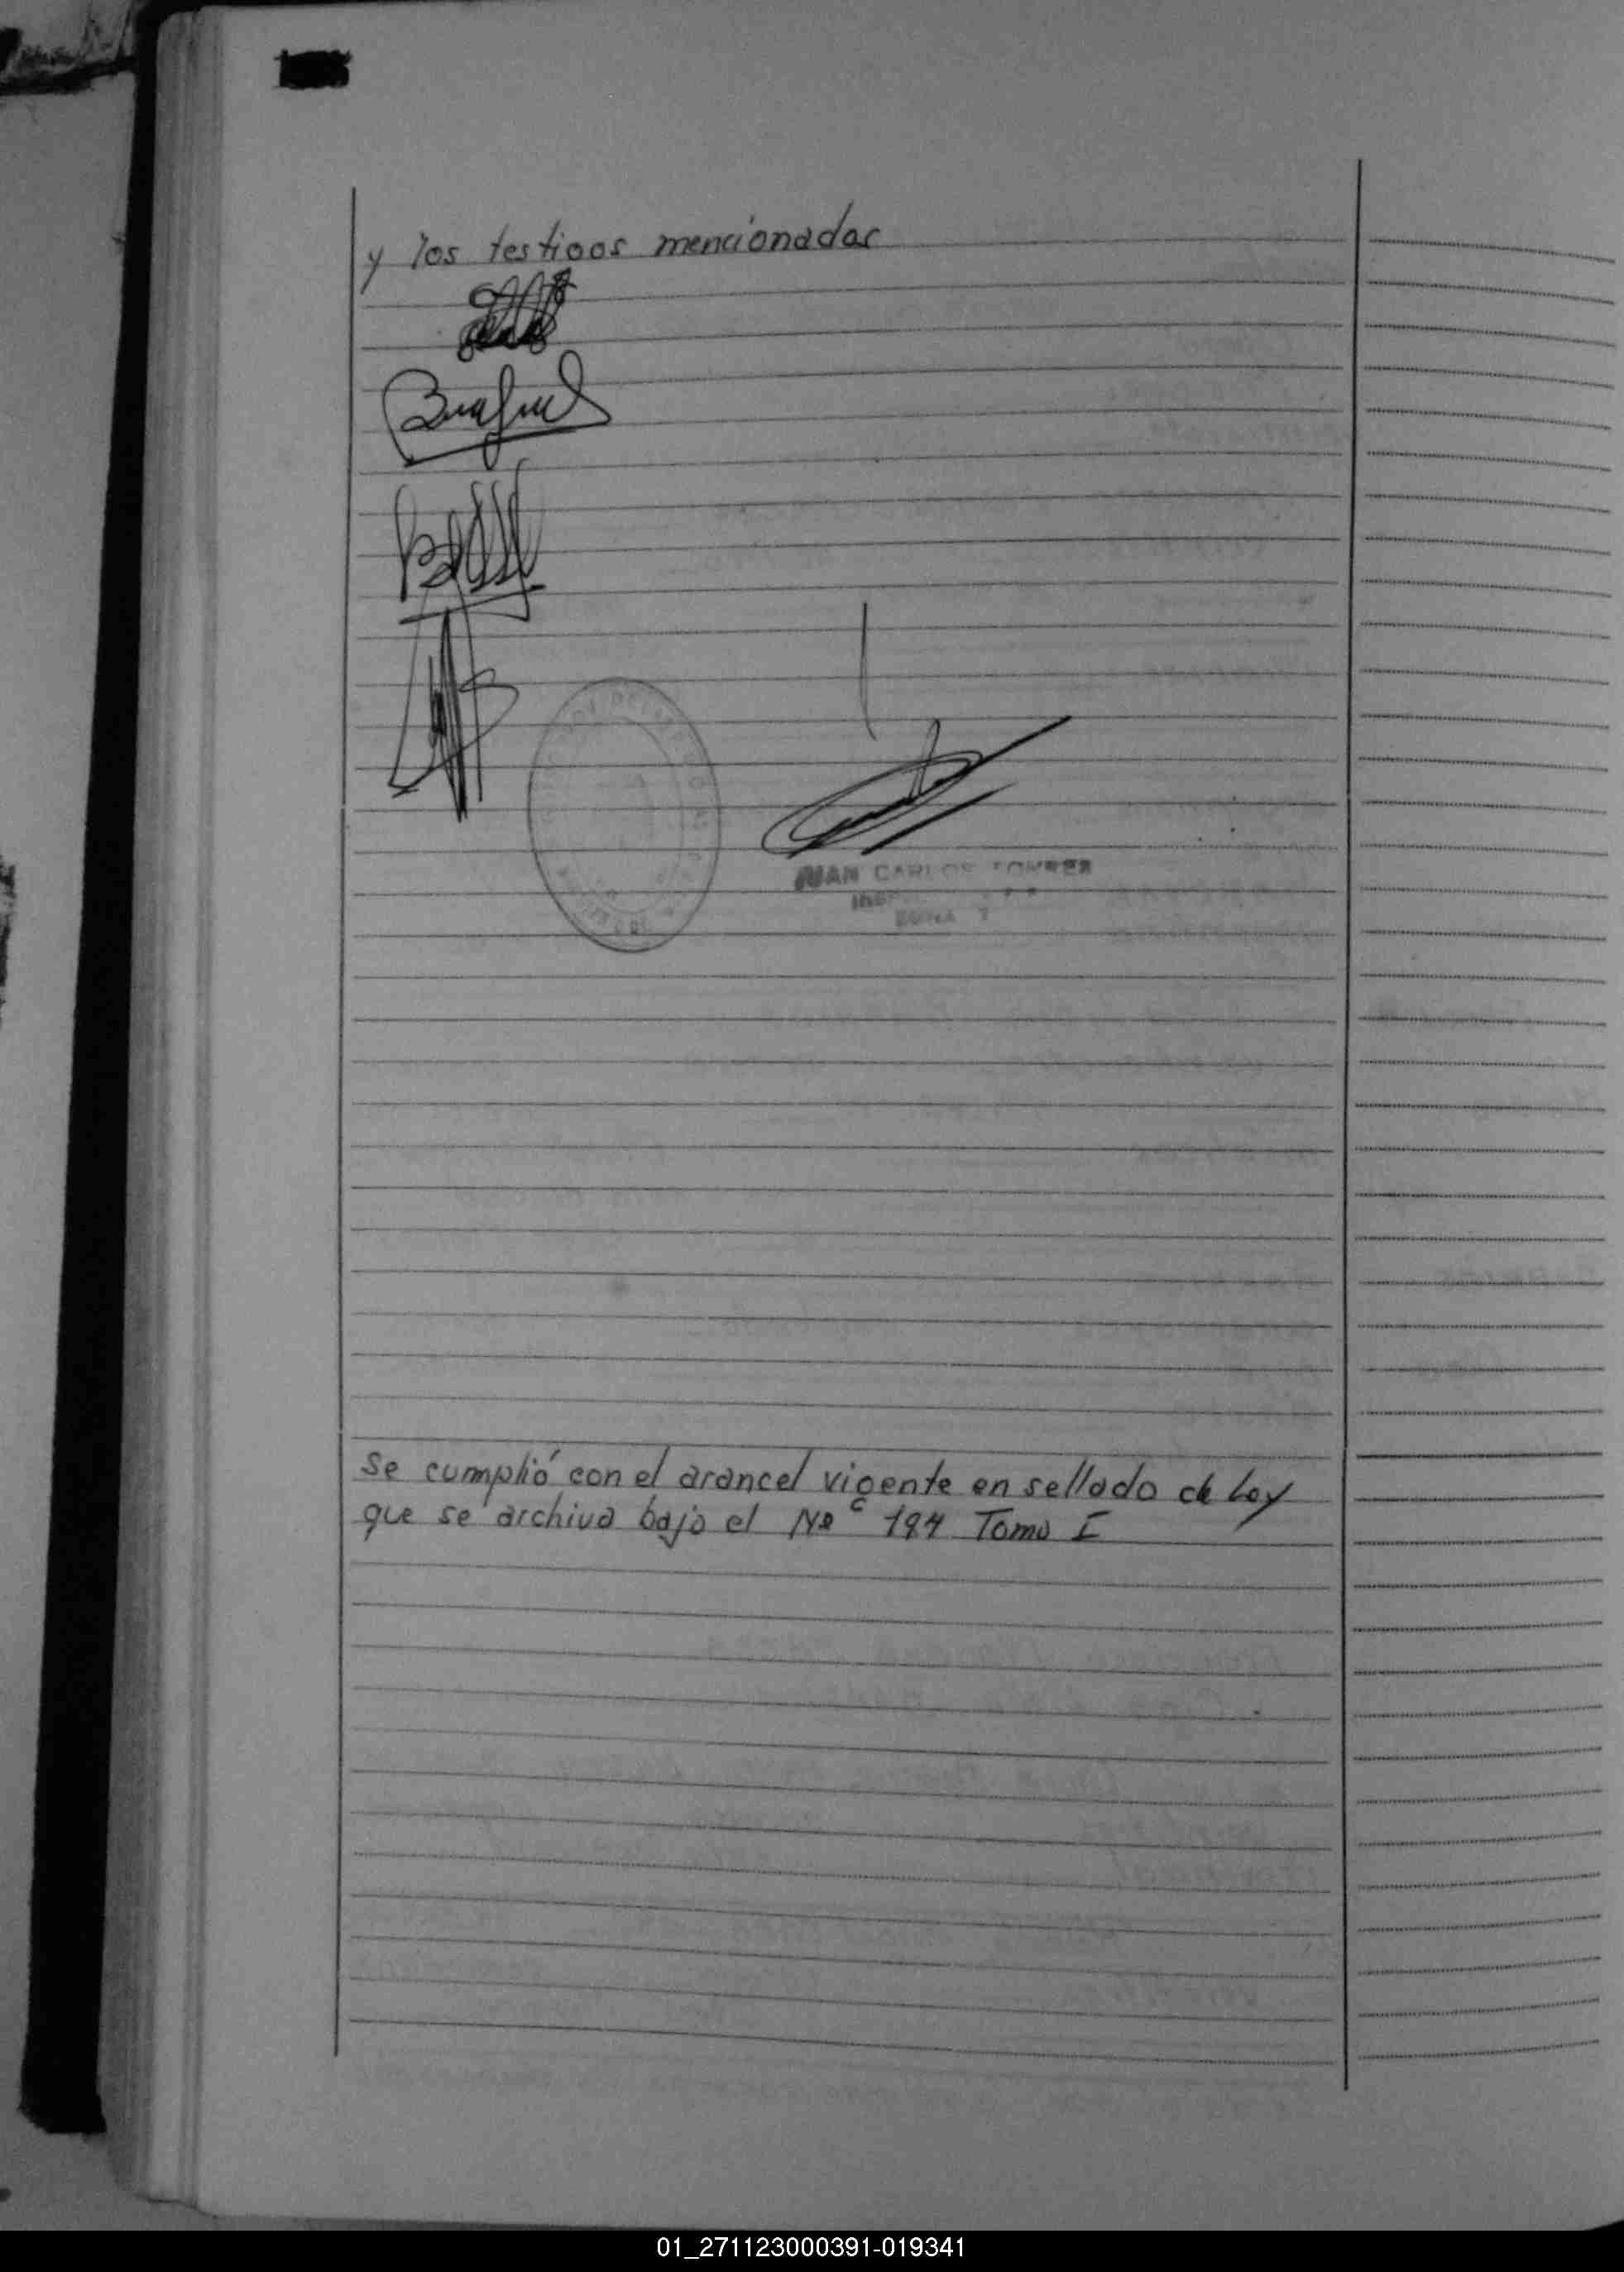 y los testigos mencionados
JUAN CARLOS TORRES
ZONA 7
Se cumplió con el arancel vigente en sellado de Ley
que se archiva bajo el Nº 194 Tomo I
01_271123000391-019341